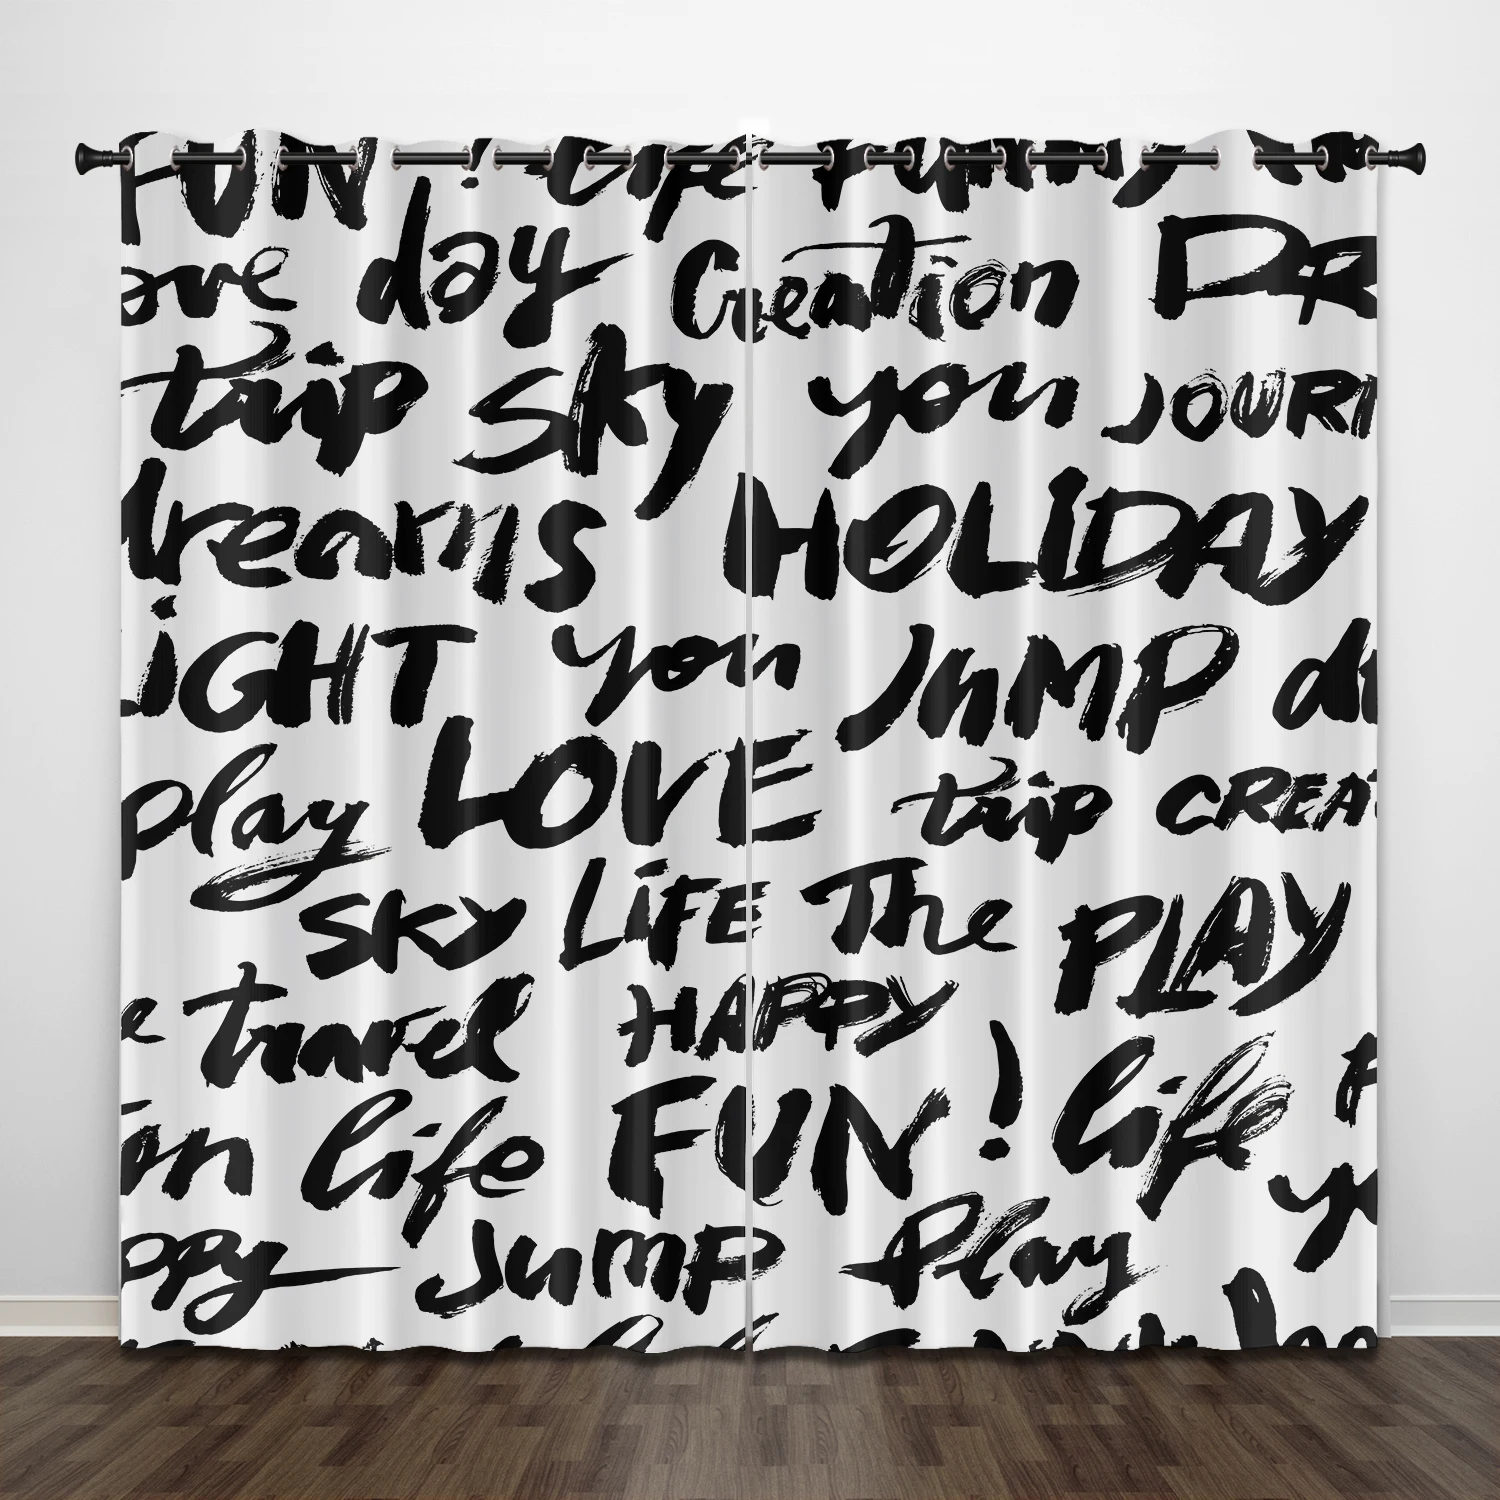 FUN ! Life Funny
ove day Creation DR
trip sky you JOURN
dreams HOLIDAY
LiGHT you JUMP dr
play LOVE trip CREAT
SKY LiFE The PLAY
e travel HAPPY
on life FUN! life
ppy Jump Play yo